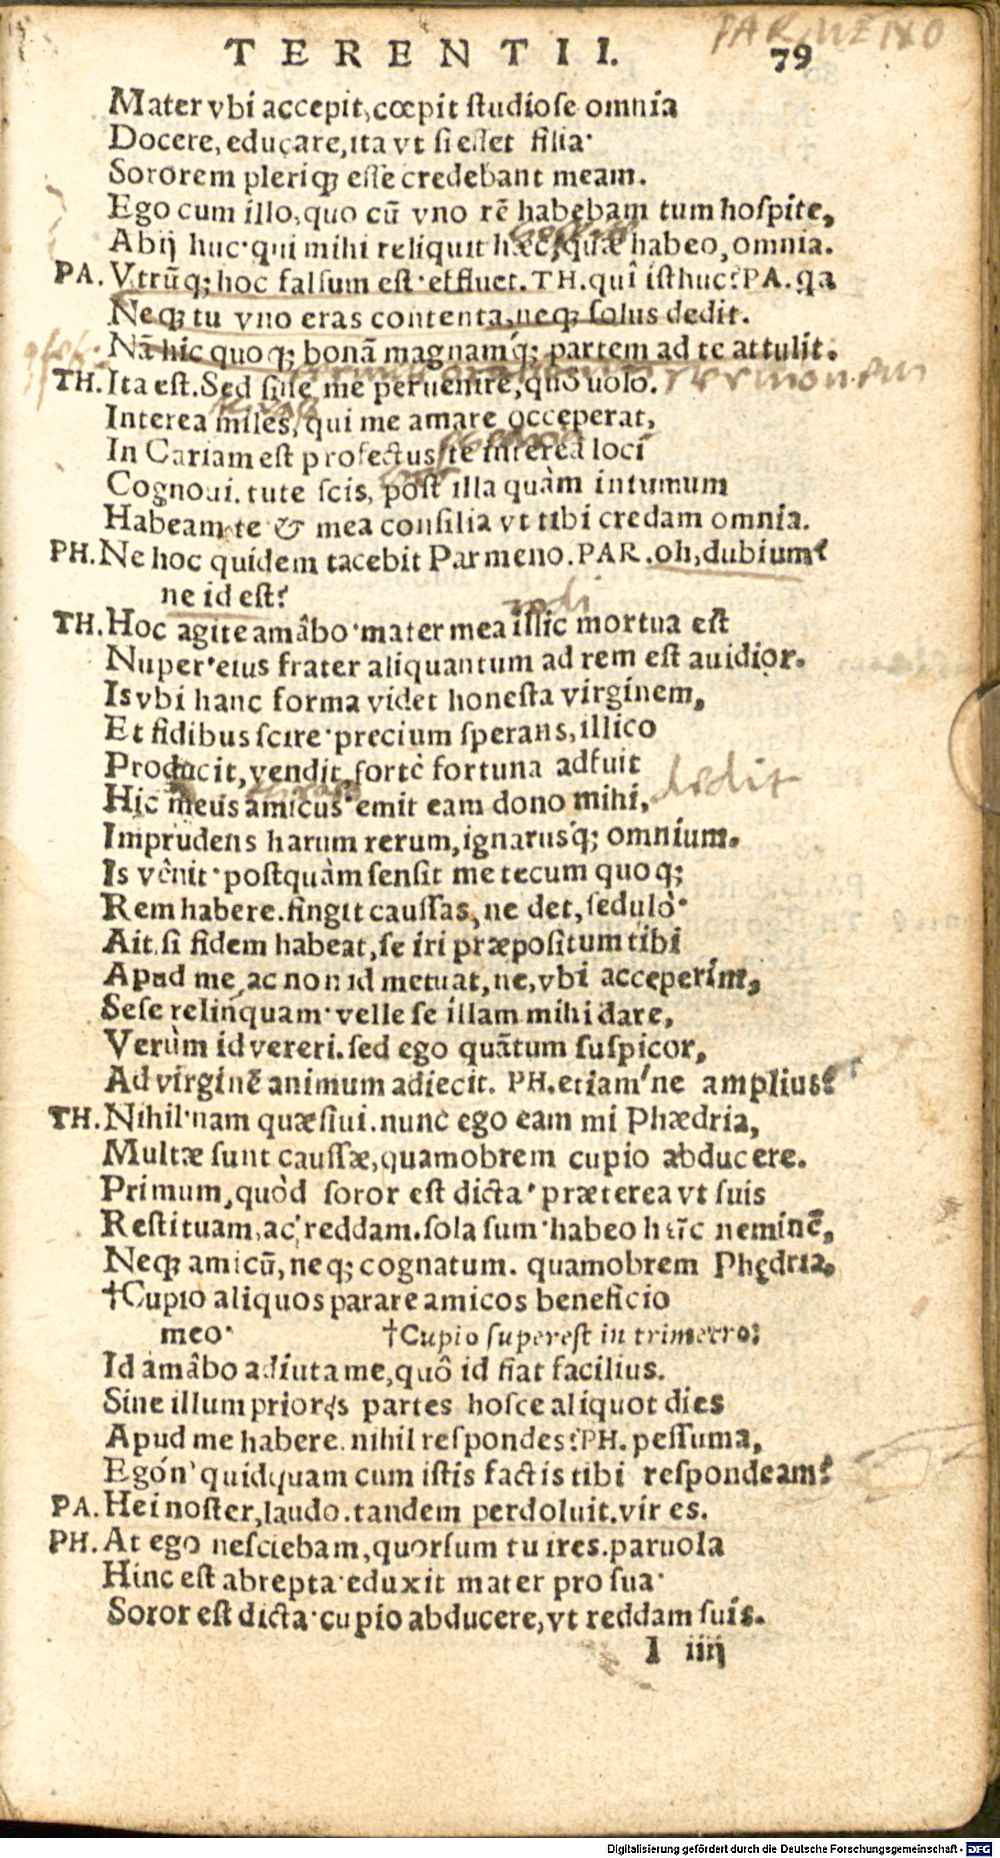 PARMENO
TERENTII. 79
Mater vbi accepit, cœpit ſtudioſe omnia
Docere, educare, ita vt ſi eſſet filia·
Sororem pleriq; eſſe credebant meam.
Ego cum illo, quo cū vno rē habebam tum hoſpite,
Abij huc· qui mihi reliquit hæc, quæ habeo, omnia.
PA. Vtrūq; hoc falſum eſt· effluet. TH. quî iſthuc? PA. qa
Neq; tu vno eras contenta, neq; ſolus dedit.
Nā hic quoq; bonā magnam'q; partem ad te attulit.
TH. Ita eſt. Sed ſine me peruenire, quò uolo.
sermonem
Interea miles, qui me amare occeperat,
In Cariam eſt profectus, te interea loci
Cognoui. tute ſcis, poſt illa quàm intumum
Habeam te & mea conſilia vt tibi credam omnia.
PH. Ne hoc quidem tacebit Parmeno. PAR. oh, dubium?
ne id eſt?
TH. Hoc agite amâbo· mater mea illic mortua eſt
Nuper· eius frater aliquantum ad rem eſt auidior.
Is vbi hanc forma videt honeſta virginem,
Et fidibus ſcire· precium ſperans, illico
Producit, vendit. fortè fortuna adfuit
Hic meus amicus· emit eam dono mihi, dedit
Imprudens harum rerum, ignarus'q; omnium.
Is vênit· poſtquàm ſenſit me tecum quoq;
Rem habere. fingit cauſſas, ne det, ſedulò·
Ait. ſi fidem habeat, ſe iri præpoſitum tibi
Apud me, ac non id metuat, ne, vbi acceperim,
Seſe relinquam· velle ſe illam mihi dare,
Verùm id vereri. ſed ego quātum ſuſpicor,
Ad virginē animum adiecit. PH. etiam'ne amplius?
TH. Nihil· nam quæſiui. nunc ego eam mi Phædria,
Multæ ſunt cauſſæ, quamobrem cupio abducere.
Primum, quòd ſoror eſt dicta· præterea vt ſuis
Reſtituam, ac reddam. ſola ſum· habeo hîc neminē,
Neq; amicū, neq; cognatum. quamobrem Phędria,
†Cupio aliquos parare amicos beneficio
meo· †Cupio ſupereſt in trimetro:
Id amâbo adiuta me, quô id fiat facilius.
Sine illum priores partes hoſce aliquot dies
Apud me habere. nihil reſpondes? PH. peſſuma,
Egón' quidquam cum iſtis factis tibi reſpondeam?
PA. Hei noſter, laudo. tandem perdoluit. vir es.
PH. At ego neſciebam, quorſum tu ires. paruola
Hinc eſt abrepta· eduxit mater pro ſua·
Soror eſt dicta· cupio abducere, vt reddam ſuis.
I iiij
Digitalisierung gefördert durch die Deutsche Forschungsgemeinschaft - DFG